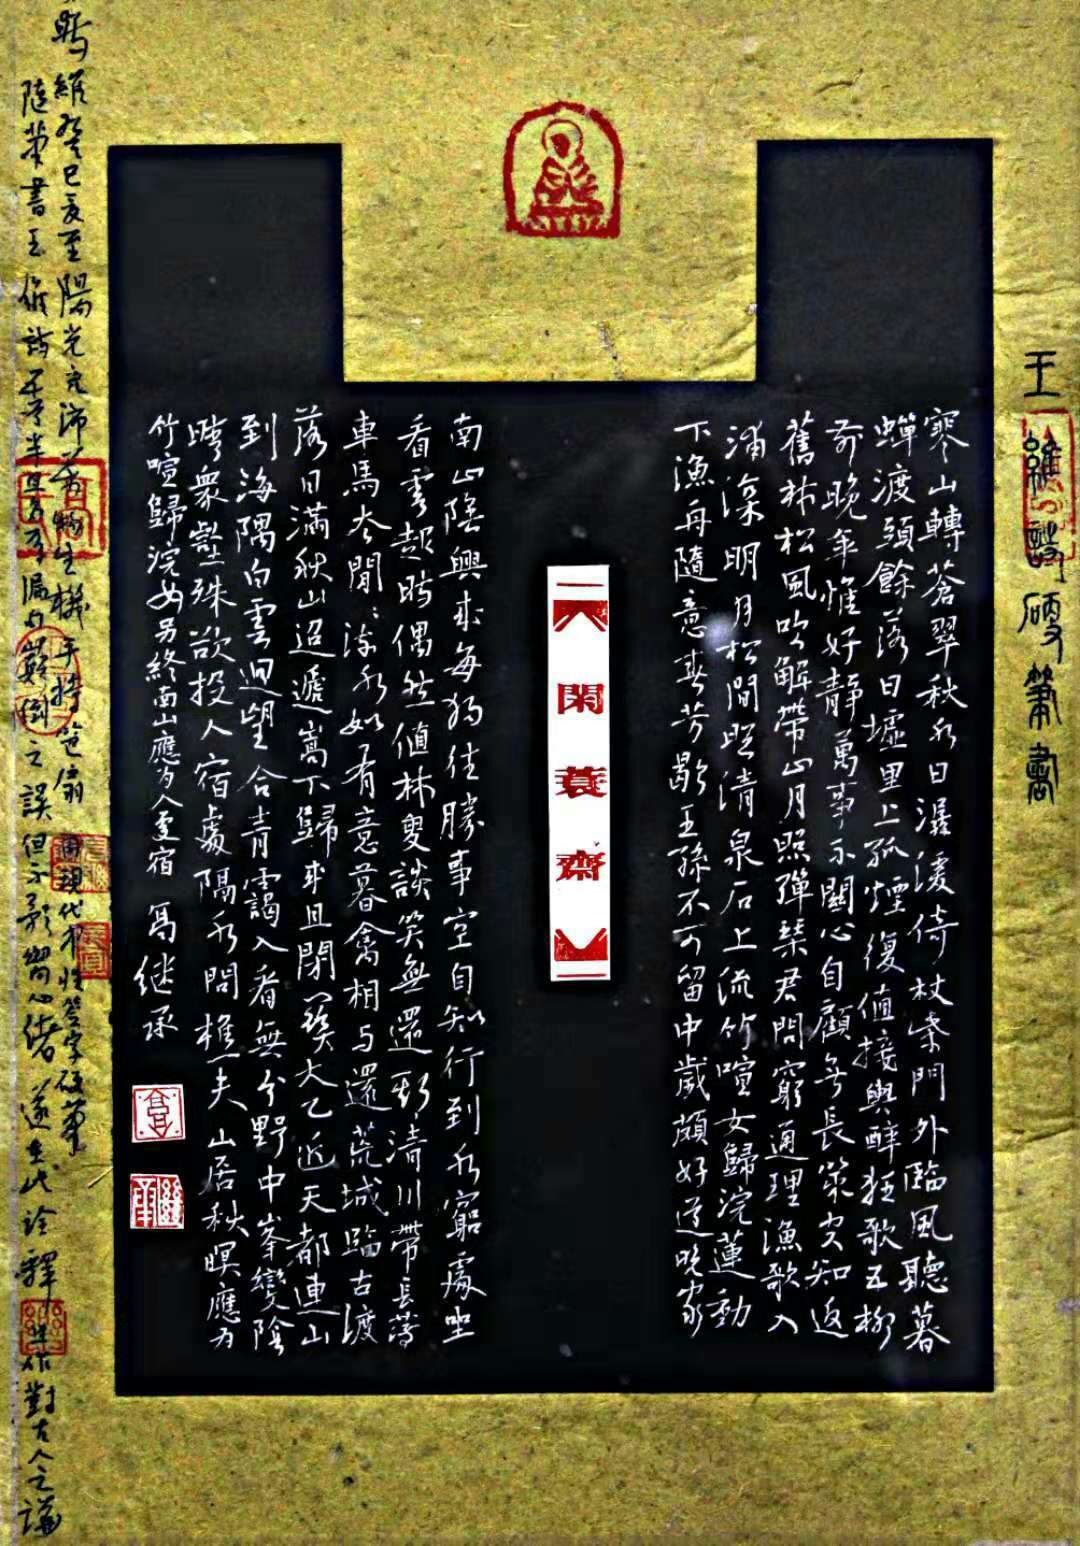 王維詩硬筆書
寒山轉蒼翠秋水日潺湲倚杖柴門外臨風聽暮
蟬渡頭餘落日墟里上孤煙復值接輿醉狂歌五柳
前晚年惟好靜萬事不關心自顧無長策空知返
舊林松風吹解帶山月照彈琴君問窮通理漁歌入
浦深明月松間照清泉石上流竹喧女歸浣蓮動
下漁舟隨意春芳歇王孫不可留中歲頗好道晚家
閑蓑齋
南山陲興來每獨往勝事空自知行到水窮處坐
看雲起時偶然值林叟談笑無還期清川帶長薄
車馬去閒〻流水如有意暮禽相与還荒城臨古渡
落日滿秋山迢遞嵩下歸來且閉關太乙近天都連山
到海隅白雲迴望合青靄入看無分野中峯變陰
晴衆壑殊欲投人宿處隔水問樵夫 山居秋暝應为
竹喧歸浣女另終南山應为人處宿 高继承
時維癸巳夏至陽光充沛萬物生機手持笆扇用現代水性簽字硬筆
隨筆書王維詩有漏句顛倒之誤但不影響心緒遂在此詮釋作對古人之謙